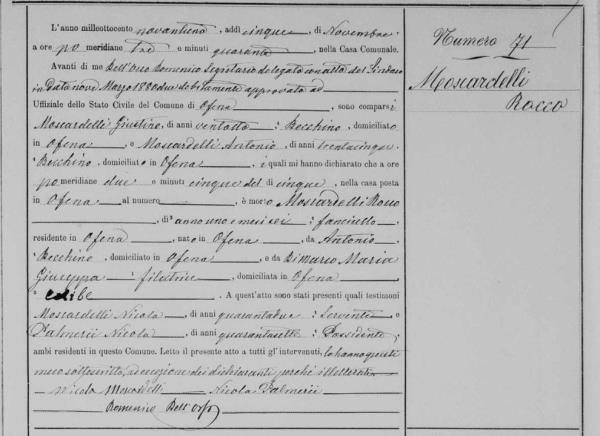 L'anno milleottocento novantuno, addì cinque, di Novembre
a ore po meridiane tre e minuti quaranta, nella Casa Comunale.
Avanti di me Dell'Orso Domenico Segretario delegato con atto del Sindaco
in data nove Marzo 1880 debitamente approvato ad
Uffiziale dello Stato Civile del Comune di Ofena, sono comparsi
Moscardelli Giustino, di anni ventotto: Becchino, domiciliato
in Ofena, e Moscardelli Antonio, di anni trentacinque
Becchino, domiciliato in Ofena, i quali mi hanno dichiarato che a ore
po meridiane due e minuti cinque del dì cinque, nella casa posta
in Ofena al numero, è morto Moscardelli Rocco
, di anno uno e mesi sei: fanciullo
residente in Ofena, nato in Ofena, da Antonio
Becchino, domiciliato in Ofena, e da Dimarco Maria
Giuseppa: filatrice, domiciliata in Ofena
. A quest'atto sono stati presenti quali testimoni
Moscardelli Nicola, di anni quarantadue: Serviente e
Palmerii Nicola, di anni quarantasette: Possidente,
ambi residenti in questo Comune. Letto il presente atto a tutti gl' intervenuti, lo hanno questi
meco sottoscritto, ad eccezione dei dichiaranti perché illetterati
Nicola Moscardelli Nicola Palmerii
Domenico Dell'Orso
Numero 71
Moscardelli
Rocco